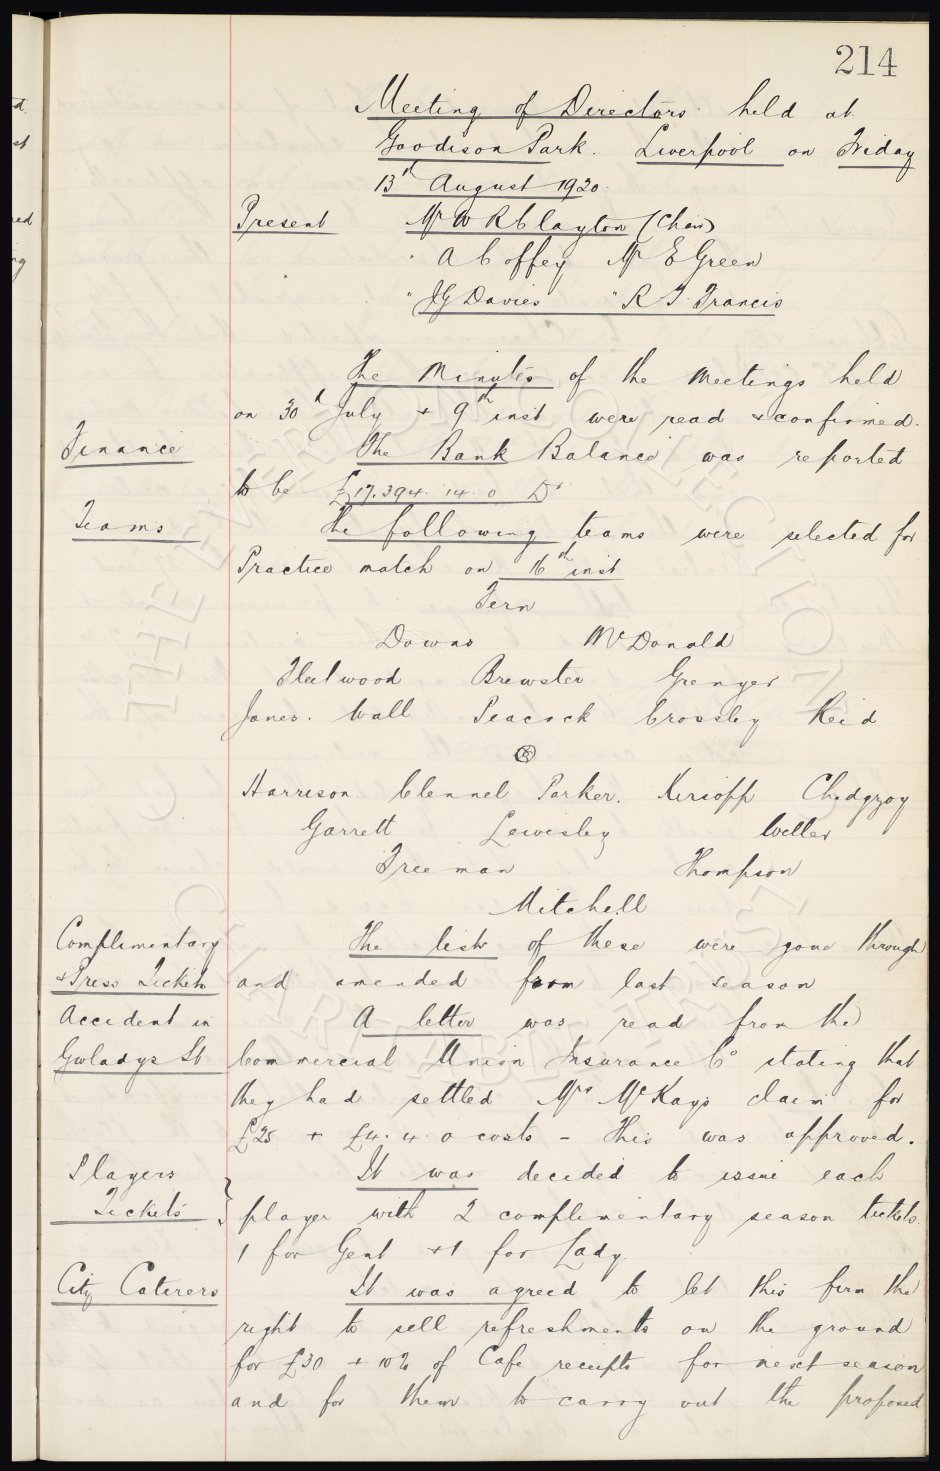 214
Meeting of Directors held at
Goodison Park. Liverpool on Friday
13th August 1920.
Present Mr W R Clayton (Chair)
" A Coffey Mr E Green
" J G Davies " R T Francis
The Minutes of the Meetings held
on 30th July & 9th inst were read & confirmed.
Finance The Bank Balance was reported
to be £17.394. 14. 0 Dr
Teams The following teams were selected for
Practice match on 16th inst
Fern
Downs McDonald
Fleetwood Brewster Grenyer
Jones. Wall Peacock Crossley Reid
Harrison Clennel Parker. Kirsopp Chedgzoy
Garrett Lewisley Weller
Freeman Thompson
Mitchell
Complimentary The lists of these were gone through
& Press Tickets and amended from last season
Accident in A letter was read from the
Gwladys St Commercial Union Insurance Co stating that
they had settled Mrs McKay's claim for
£25 + £4. 4. 0 costs – This was approved.
Players It was decided to issue each
Tickets player with 2 complimentary season tickets.
1 for Gent & 1 for Lady.
City Caterers It was agreed to let this firm the
right to sell refreshments on the ground
for £30 + 10% of Cafe receipts for next season
and for them to carry out the proposed
THE EVERTON COLLECTION
CHARITABLE TRUST